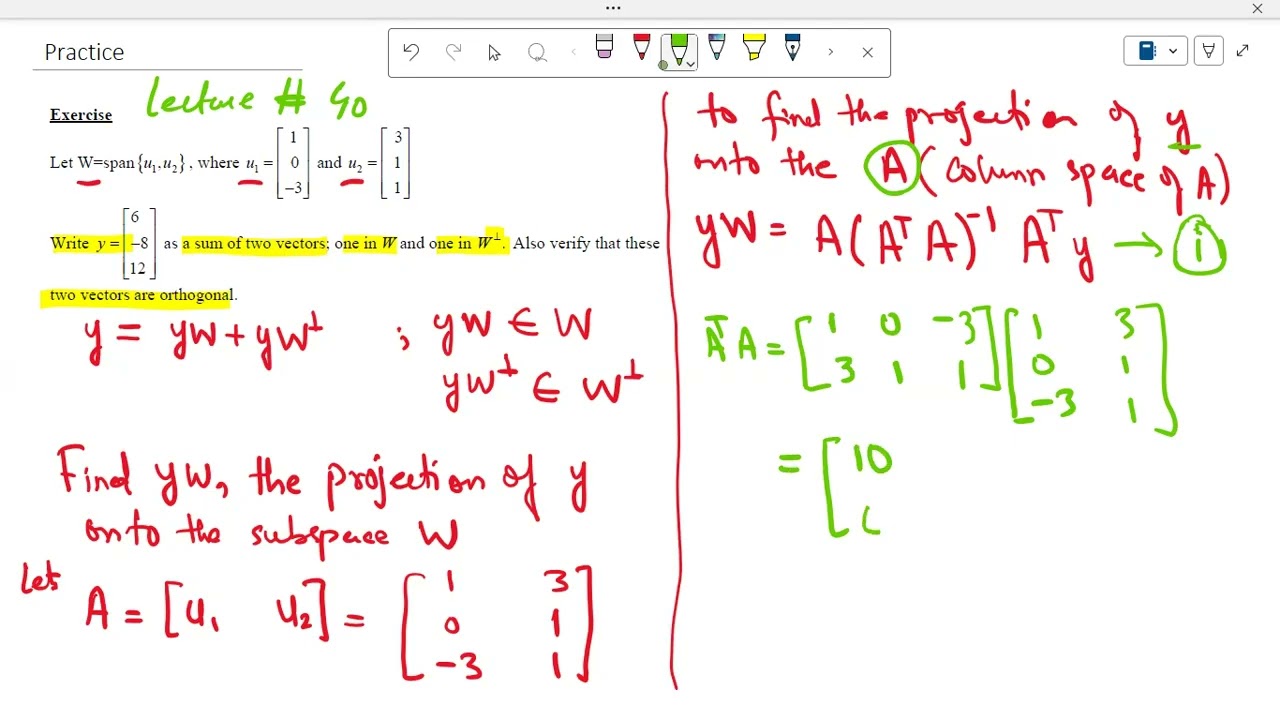 Practice
Lecture # 40
Exercise
Let W=span{u₁,u₂}, where u₁ = [1 0 −3] and u₂ = [3 1 1]
Write y = [6 −8 12] as a sum of two vectors; one in W and one in W⊥. Also verify that these
two vectors are orthogonal.
y = yW + yW⊥ ; yW ∈ W
yW⊥ ∈ W⊥
Find yW, the projection of y
onto the subspace W
Lets
A = [u₁ u₂] = [1 3
0 1
−3 1]
to find the projection of y
onto the A (column space of A)
yW = A(AᵀA)⁻¹ Aᵀy → i
AᵀA = [1 0 −3
3 1 1] [1 3
0 1
−3 1]
= [10